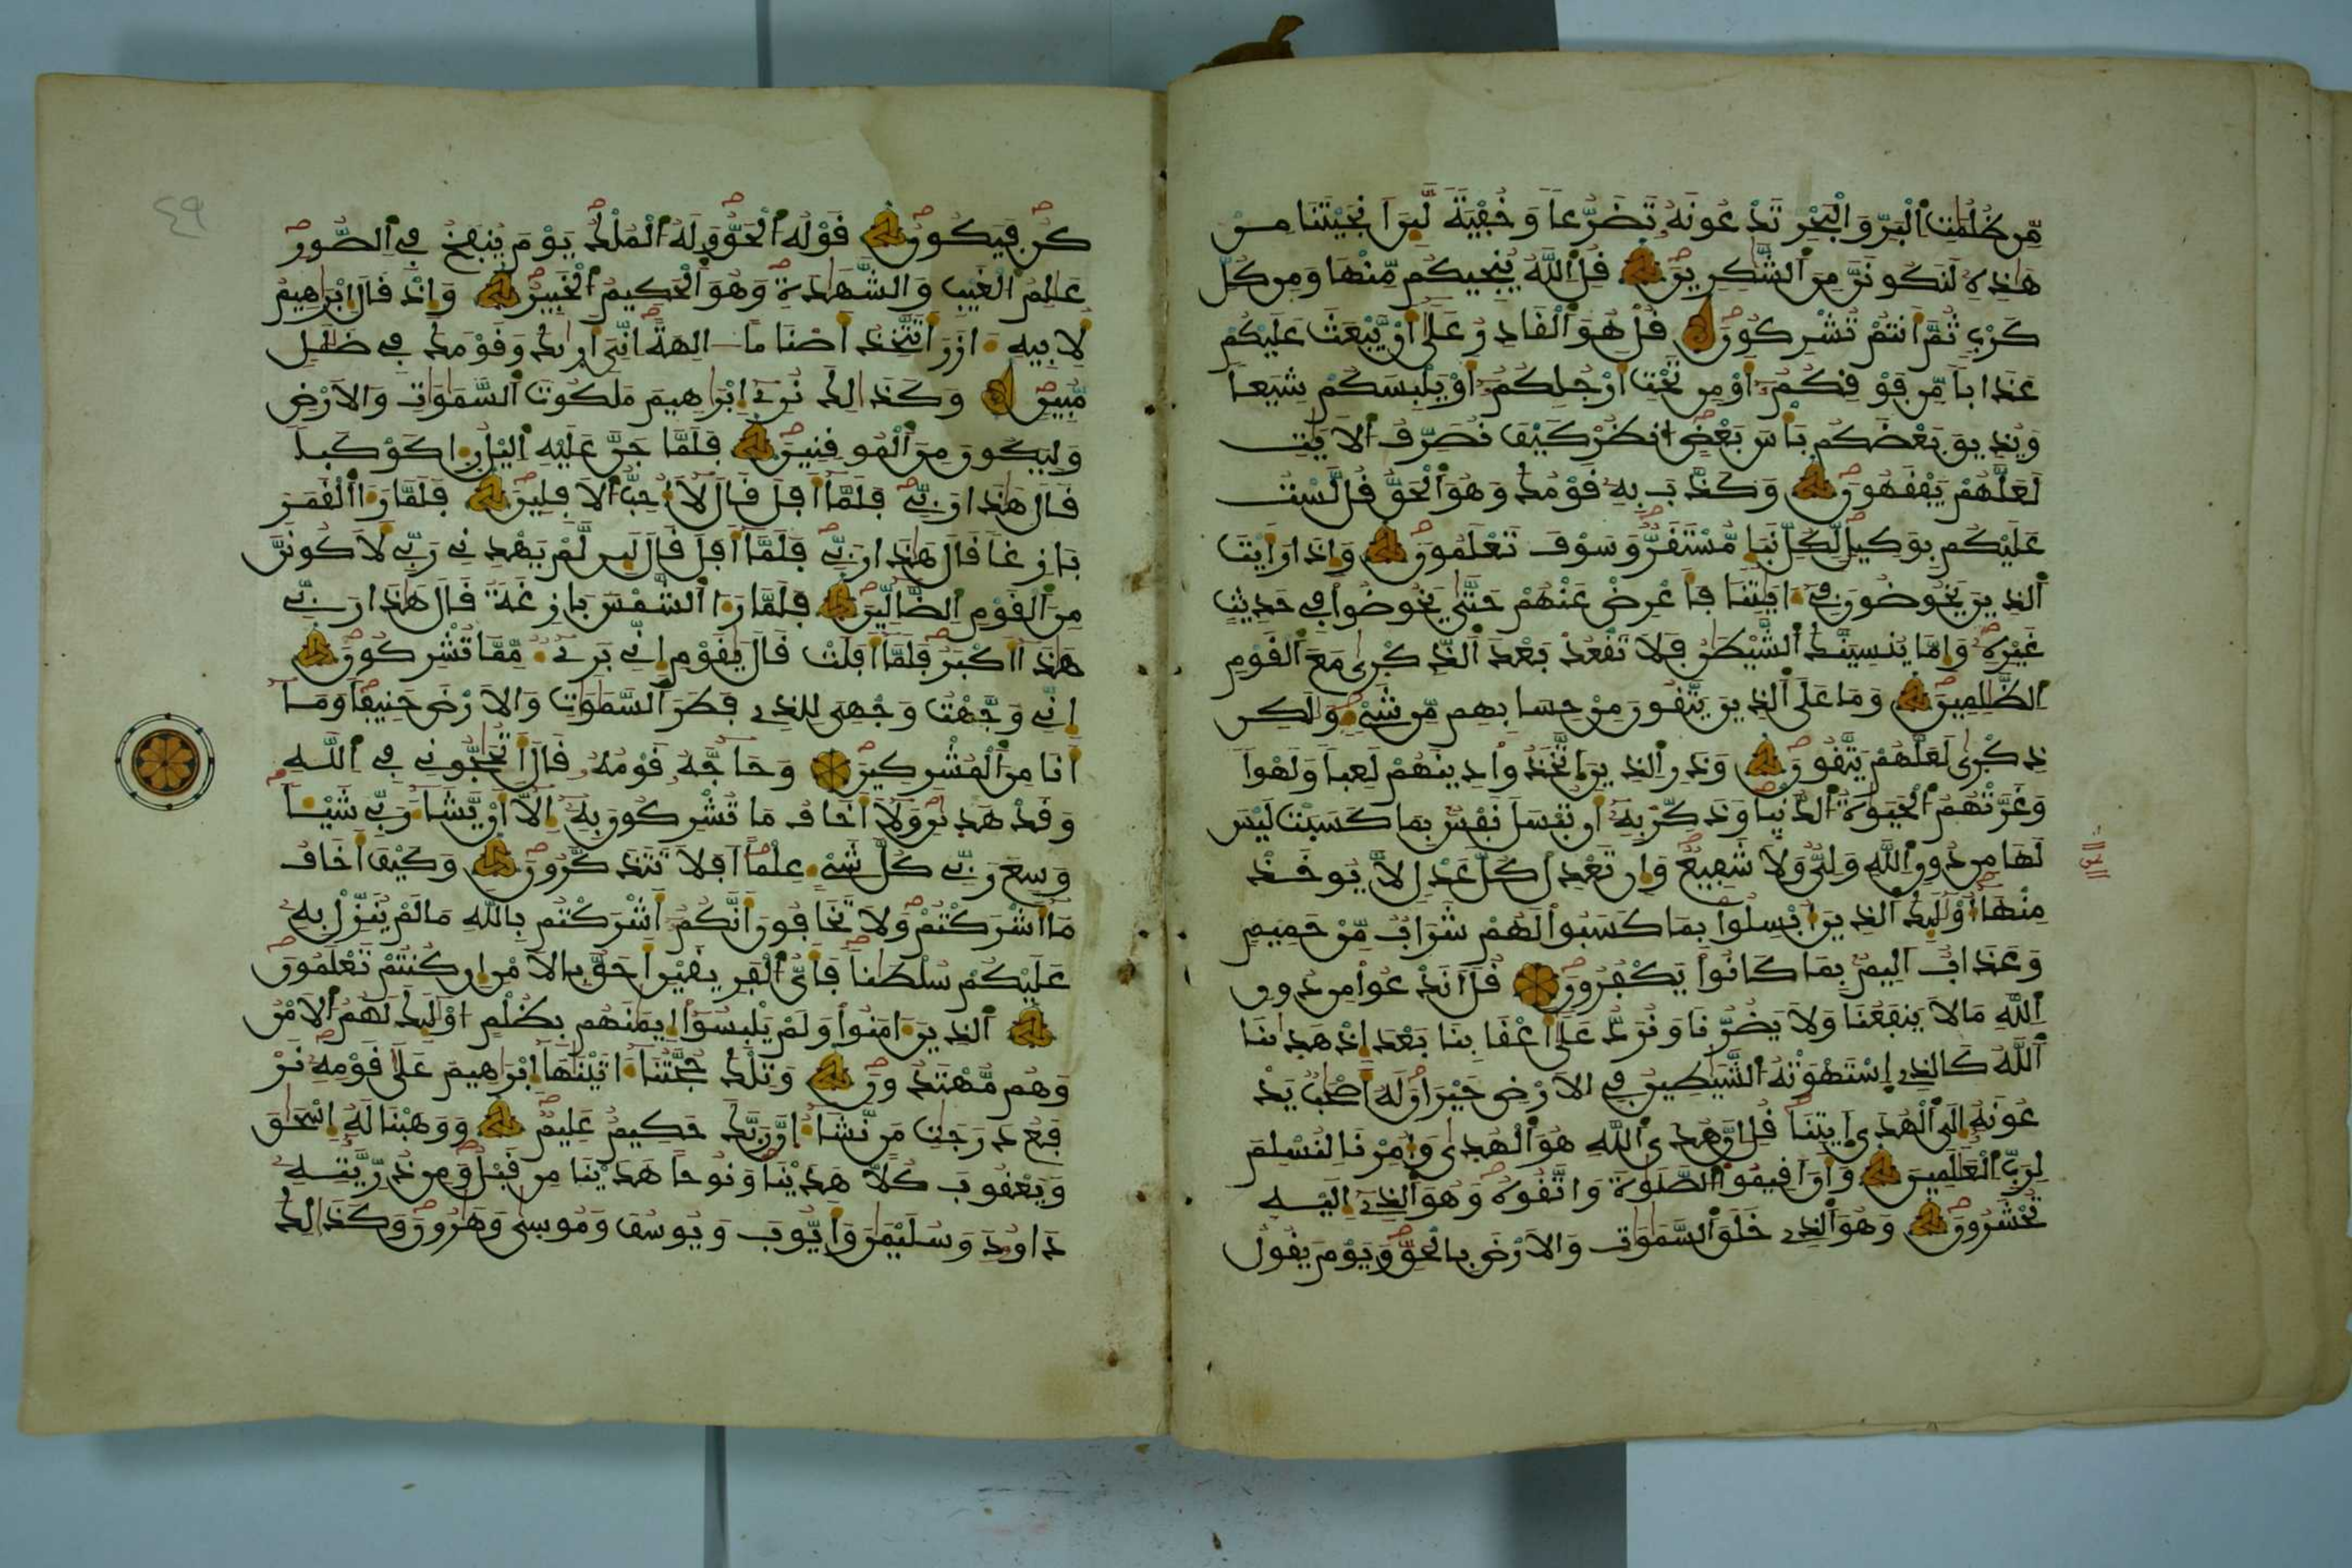 مِّن ظُلُمَٰتِ اِ۬لْبَرِّ وَالْبَحْرِ تَدْعُونَهُۥ تَضَرُّعاٗ وَخُفْيَةٗ لَّئِنَ اَنجَيْتَنَا مِنْ
هَٰذِهِۦ لَنَكُونَنَّ مِنَ اَ۬لشَّٰكِرِينَ قُلِ اِ۬للَّهُ يُنجِيكُم مِّنْهَا وَمِن كُلِّ
كَرْبٖ ثُمَّ أَنتُمْ تُشْرِكُونَ قُلْ هُوَ اَ۬لْقَادِرُ عَلَىٰ أَنْ يَّبْعَثَ عَلَيْكُمْ
عَذَاباٗ مِّن فَوْقِكُمُۥٓ أَوْ مِن تَحْتِ أَرْجُلِكُمُۥٓ أَوْ يَلْبِسَكُمْ شِيَعاٗ
وَيُذِيقَ بَعْضَكُم بَأْسَ بَعْضٍ اُ۟نظُرْ كَيْفَ نُصَرِّفُ اُ۬لَايَٰتِ
لَعَلَّهُمْ يَفْقَهُونَ وَكَذَّبَ بِهِۦ قَوْمُكَ وَهُوَ اَ۬لْحَقُّ قُل لَّسْتُ
عَلَيْكُم بِوَكِيلٖ لِّكُلِّ نَبَإٖ مُّسْتَقَرّٞ وَسَوْفَ تَعْلَمُونَ وَإِذَا رَأَيْتَ
اَ۬لذِينَ يَخُوضُونَ فِےٓ ءَايَٰتِنَا فَأَعْرِضْ عَنْهُمْ حَتَّىٰ يَخُوضُواْ فِے حَدِيثٍ
غَيْرِهِۦ وَإِمَّا يُنسِيَنَّكَ اَ۬لشَّيْطَٰنُ فَلَا تَقْعُدْ بَعْدَ اَ۬لذِّكْر۪ىٰ مَعَ اَ۬لْقَوْمِ
اِ۬لظَّٰلِمِينَ وَمَا عَلَى اَ۬لذِينَ يَتَّقُونَ مِنْ حِسَابِهِم مِّن شَےْءٖ وَلَٰكِن
ذِكْر۪ىٰ لَعَلَّهُمْ يَتَّقُونَ وَذَرِ اِ۬لذِينَ اَ۪تَّخَذُواْ دِينَهُمْ لَعِباٗ وَلَهْواٗ
وَغَرَّتْهُمُ اُ۬لْحَيَوٰةُ اُ۬لدُّنْيَا وَذَكِّرْ بِهِۦٓ أَن تُبْسَلَ نَفْسُۢ بِمَا كَسَبَتْ لَيْسَ
لَهَا مِن دُونِ اِ۬للَّهِ وَلِيّٞ وَلَا شَفِيعٞ وَإِن تَعْدِلْ كُلَّ عَدْلٖ لَّا يُوخَذْ
مِنْهَآ أُوْلَٰٓئِكَ اَ۬لذِينَ أُبْسِلُواْ بِمَا كَسَبُواْ لَهُمْ شَرَابٞ مِّنْ حَمِيمٖ
وَعَذَابٌ أَلِيمُۢ بِمَا كَانُواْ يَكْفُرُونَ قُلَ اَنَدْعُواْ مِن دُونِ
اِ۬للَّهِ مَا لَا يَنفَعُنَا وَلَا يَضُرُّنَا وَنُرَدُّ عَلَىٰٓ أَعْقَابِنَا بَعْدَ إِذْ هَد۪ىٰنَا
اَ۬للَّهُ كَالذِے اِ۪سْتَهْوَتْهُ اُ۬لشَّيَٰطِينُ فِے اِ۬لَارْضِ حَيْرَانَ لَهُۥٓ أَصْحَٰبٞ يَدْ
عُونَهُۥٓ إِلَى اَ۬لْهُدَى اَ۪يتِنَا قُلِ اِنَّ هُدَى اَ۬للَّهِ هُوَ اَ۬لْهُد۪ىٰ وَأُمِرْنَا لِنُسْلِمَ
لِرَبِّ اِ۬لْعَٰلَمِينَ وَأَنَ اَقِيمُواْ اُ۬لصَّلَوٰةَ وَاتَّقُوهُ وَهُوَ اَ۬لذِےٓ إِلَيْهِ
تُحْشَرُونَ وَهُوَ اَ۬لذِے خَلَقَ اَ۬لسَّمَٰوَٰتِ وَالَارْضَ بِالْحَقِّ وَيَوْمَ يَقُولُ
٤٩
كُن فَيَكُونُ قَوْلُهُ اُ۬لْحَقُّ وَلَهُ اُ۬لْمُلْكُ يَوْمَ يُنفَخُ فِے اِ۬لصُّورِ
عَٰلِمُ اُ۬لْغَيْبِ وَالشَّهَٰدَةِ وَهُوَ اَ۬لْحَكِيمُ اُ۬لْخَبِيرُ وَإِذْ قَالَ إِبْرَٰهِيمُ
لِأَبِيهِ ءَازَرَ أَتَتَّخِذُ أَصْنَاماً ـالِهَةً اِنِّيَ أَر۪ىٰكَ وَقَوْمَكَ فِے ضَلَٰلٖ
مُّبِينٖ وَكَذَٰلِكَ نُرِےٓ إِبْرَٰهِيمَ مَلَكُوتَ اَ۬لسَّمَٰوَٰتِ وَالَارْضِ
وَلِيَكُونَ مِنَ اَ۬لْمُوقِنِينَ فَلَمَّا جَنَّ عَلَيْهِ اِ۬ليْلُ ر۪ء۪ا كَوْكَباٗ
قَالَ هَٰذَا رَبِّے فَلَمَّآ أَفَلَ قَالَ لَآ أُحِبُّ اُ۬لَافِلِينَ فَلَمَّا رَءَا اَ۬لْقَمَرَ
بَازِغاٗ قَالَ هَٰذَا رَبِّے فَلَمَّآ أَفَلَ قَالَ لَئِن لَّمْ يَهْدِنِے رَبِّے لَأَكُونَنَّ
مِنَ اَ۬لْقَوْمِ اِ۬لضَّآلِّينَ فَلَمَّا رَءَا اَ۬لشَّمْسَ بَازِغَةٗ قَالَ هَٰذَا رَبِّے
هَٰذَآ أَكْبَرُ فَلَمَّآ أَفَلَتْ قَالَ يَٰقَوْمِ إِنِّے بَرِےٓءٞ مِّمَّا تُشْرِكُونَ
إِنِّے وَجَّهْتُ وَجْهِيَ لِلذِے فَطَرَ اَ۬لسَّمَٰوَٰتِ وَالَارْضَ حَنِيفاٗ وَمَآ
أَنَا مِنَ اَ۬لْمُشْرِكِينَ وَحَآجَّهُۥ قَوْمُهُۥ قَالَ أَتُحَٰٓجُّونِے فِے اِ۬للَّهِ
وَقَدْ هَد۪ىٰنِۦ وَلَآ أَخَافُ مَا تُشْرِكُونَ بِهِۦٓ إِلَّآ أَنْ يَّشَآءَ رَبِّے شَيْـٔاٗ
وَسِعَ رَبِّے كُلَّ شَےْءٍ عِلْماً اَفَلَا تَتَذَكَّرُونَ وَكَيْفَ أَخَافُ
مَآ أَشْرَكْتُمْ وَلَا تَخَافُونَ أَنَّكُمُۥٓ أَشْرَكْتُم بِاللَّهِ مَا لَمْ يُنَزِّلْ بِهِۦ
عَلَيْكُمْ سُلْطَٰناٗ فَأَيُّ اُ۬لْفَرِيقَيْنِ أَحَقُّ بِالَامْنِ إِن كُنتُمْ تَعْلَمُونَ
اَ۬لذِينَ ءَامَنُواْ وَلَمْ يَلْبِسُوٓاْ إِيمَٰنَهُم بِظُلْمٍ اُوْلَٰٓئِكَ لَهُمُ اُ۬لَامْنُ
وَهُم مُّهْتَدُونَ وَتِلْكَ حُجَّتُنَآ ءَاتَيْنَٰهَآ إِبْرَٰهِيمَ عَلَىٰ قَوْمِهِۦ نَرْ
فَعُ دَرَجَٰتِ مَن نَّشَآءُ إِنَّ رَبَّكَ حَكِيمٌ عَلِيمٞ وَوَهَبْنَا لَهُۥٓ إِسْحَٰقَ
وَيَعْقُوبَ كُلّاً هَدَيْنَا وَنُوحاً هَدَيْنَا مِن قَبْلُ وَمِن ذُرِّيَّتِهِۦ
دَاوُۥدَ وَسُلَيْمَٰنَ وَأَيُّوبَ وَيُوسُفَ وَمُوسَىٰ وَهَٰرُونَ وَكَذَٰلِكَ